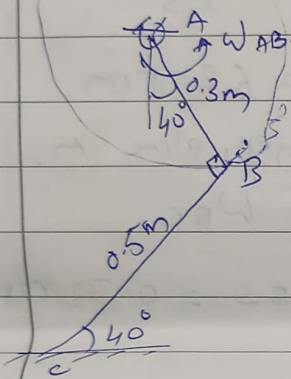 A
ω AB
0.3m
40°
B
0.5m
40°
C